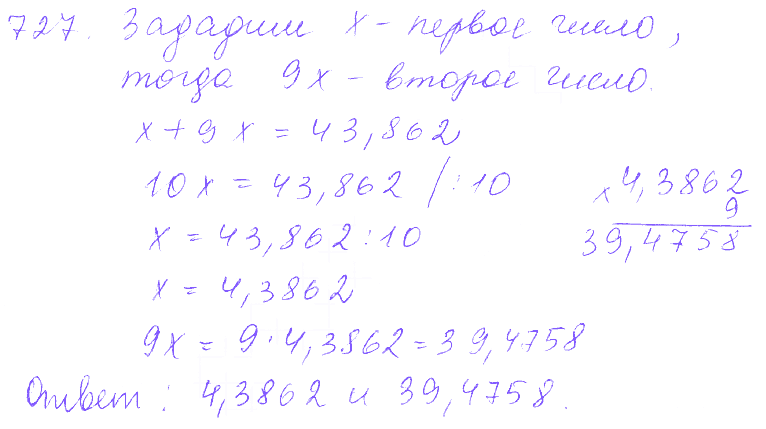 727. Зададим x - первое число,
тогда 9x - второе число.
x + 9x = 43,862
10x = 43,862 /:10
x = 43,862:10
x = 4,3862
9x = 9·4,3862 = 39,4758
Ответ: 4,3862 и 39,4758.
× 4,3862
9
39,4758